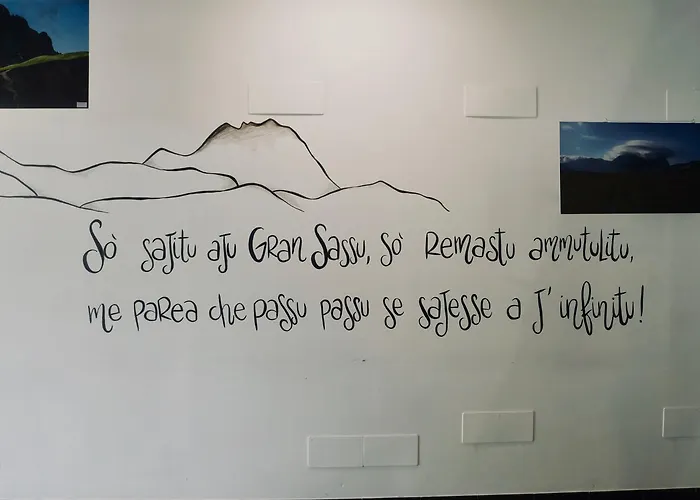 Sò sajitu aju Gran Sassu, sò remastu ammutulitu,
me parea che passu passu se sajesse a j'infinitu!